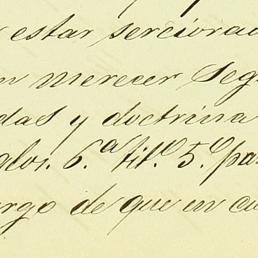 y estar serciorad
n merecer Seg
das y doctrina
glos. 6.ª tit.º 5.º pa
argo de que en cu